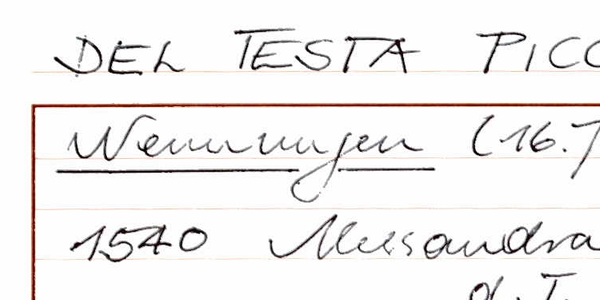 DEL TESTA PICC
Nennungen (16.)
1540 Alessandra
d. T.